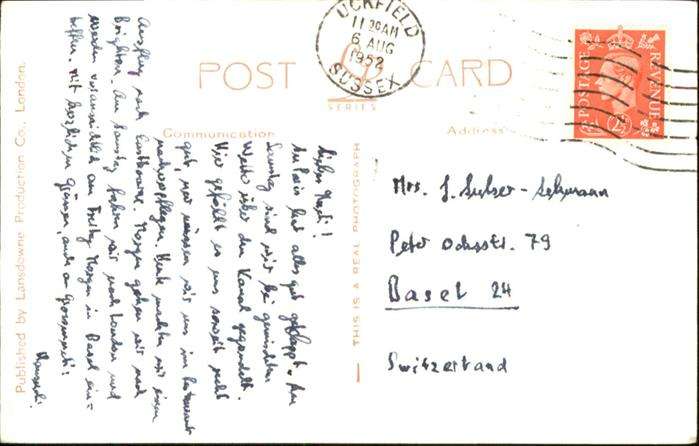 POST CARD
SERIES
Communication
Address
UCKFIELD
11 30AM
6 AUG
1952
SUSSEX
POSTAGE
REVENUE
Published by Lansdowne Production Co., London.
THIS IS A REAL PHOTOGRAPH
hat alles gut geklappt. Am
Samstag sind wir bei
Wetter über den Kanal gegondelt.
Hier gefällt es uns soweit recht
gut, nur müssen wir uns im Restaurant
Heute machten wir einen
Ausflug nach Eastbourne. Morgen gehen wir nach
Brighton. Am Samstag fahren wir nach London und
werden voraussichtlich am Freitag Morgen in Basel ein=
treffen. Mit herzlichen Grüssen, auch an Grossmutti!
Mrs. J. Sulzer-Schumann
Peter Ochsstr. 79
Basel 24
Switzerland